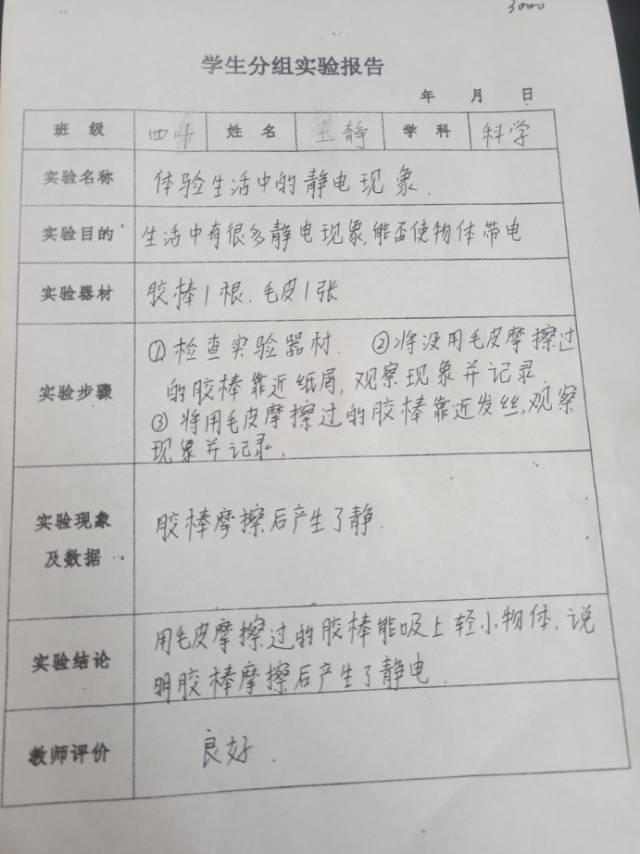 3000
学生分组实验报告
年 月 日
班 级 四 姓 名 王静 学 科 科学
实验名称 体验生活中的静电现象.
实验目的 生活中有很多静电现象,能否使物体带电
实验器材 胶棒1根.毛皮1张
①检查实验器材. ②将没用毛皮摩擦过
实验步骤 的胶棒靠近纸屑,观察现象并记录
③将用毛皮摩擦过的胶棒靠近发丝,观察
现象并记录.
实验现象 胶棒摩擦后产生了静.
及数据
用毛皮摩擦过的胶棒能吸上轻小物体,说
实验结论 明胶棒摩擦后产生了静电.
教师评价 良好.